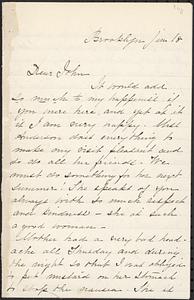 Brooklyn Jan 18
Dear John
It would add
so much to my happiness if
you were here and yet as it
is I am very happy. Miss
Anderson does everything to
make my visit pleasant and
so do all her friends. We
must do something for her next
summer. She speaks of you
always with so much respect
and kindness - she is such
a good woman -
Mother had a very bad head-
ache all Thursday and during
the night so that I was obliged
to put mustard on her stomach
to stop the nausea. She is